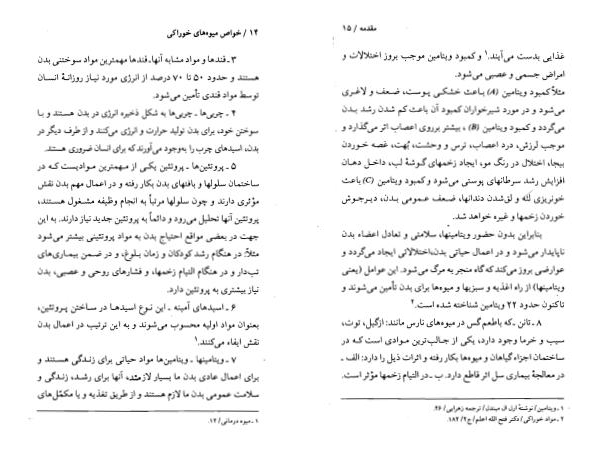 ۱۴ / خواص میوه‌های خوراکی
۳ ـ قندها و مواد مشابه آنها، قندها مهمترین مواد سوختنی بدن
هستند و حدود ۵۰ تا ۷۰ درصد از انرژی مورد نیاز روزانهٔ انسان
توسط مواد قندی تأمین می‌شود.
۴ ـ چربی‌ها ـ چربی‌ها به شکل ذخیره انرژی در بدن هستند و با
سوختن خود، برای بدن تولید حرارت و انرژی می‌کنند و از طرف دیگر در
بدن، اسیدهای چرب را بوجود می‌آورند که برای انسان ضروری هستند.
۵ ـ پروتئین‌ها ـ پروتئین یکی از مهمترین موادیست که در
ساختمان سلولها و بافتهای بدن بکار رفته و در اعمال مهم بدن نقش
مؤثری دارند و چون سلولها مرتباً به انجام وظیفه مشغول هستند،
پروتئین آنها تحلیل می‌رود و دائماً به پروتئین جدید نیاز دارند. به این
جهت در بعضی مواقع احتیاج بدن به مواد پروتئینی بیشتر می‌شود
مثلاً: در هنگام رشد کودکان و زمان بلوغ، و در ضمن بیماری‌های
تب‌دار و در هنگام التیام زخمها، و فشارهای روحی و عصبی، بدن
نیاز بیشتری به پروتئین دارد.
۶ ـ اسیدهای آمینه ـ این نوع اسیدها در ساختن پروتئین،
بعنوان مواد اولیه محسوب می‌شوند و به این ترتیب در اعمال بدن
نقش ایفاء می‌کنند.۱
۷ ـ ویتامینها ـ ویتامین‌ها مواد حیاتی برای زندگی هستند و
برای اعمال عادی بدن ما بسیار لازمند، آنها برای رشد، زندگی و
سلامت عمومی بدن ما لازم هستند و از طریق تغذیه و یا مکمّل‌های
۱ ـ میوه درمانی / ۱۲.
مقدمه / ۱۵
غذایی بدست می‌آیند.۱ و کمبود ویتامین موجب بروز اختلالات و
امراض جسمی و عصبی می‌شود.
مثلاً کمبود ویتامین (A) باعث خشکی پوست، ضعف و لاغری
می‌شود و در مورد شیرخواران کمبود آن باعث کم شدن رشد بدن
می‌گردد و کمبود ویتامین (B)، بیشتر بروی اعصاب اثر می‌گذارد و
موجب لرزش، درد اعصاب، ترس و وحشت، بُهت، غصه خوردن
بیجا، اختلال در رنگ مو، ایجاد زخمهای گوشهٔ لب، داخل دهان
افزایش رشد سرطانهای پوستی می‌شود و کمبود ویتامین (C) باعث
خونریزی لثه و لق‌شدن دندانها، ضعف عمومی بدن، دیرجوش
خوردن زخمها و غیره خواهد شد.
بنابراین بدون حضور ویتامینها، سلامتی و تعادل اعضاء بدن
ناپایدار می‌شود و در اعمال حیاتی بدن، اختلالاتی ایجاد می‌گردد و
عوارضی بروز می‌کند که گاه منجر به مرگ می‌شود. این عوامل (یعنی
ویتامینها) از راه اغذیه و سبزیها و میوه‌ها برای بدن تأمین می‌شوند و
تاکنون حدود ۲۲ ویتامین شناخته شده است.۲
۸ ـ تانن ـ که باطعم گس در میوه‌های نارس مانند: ازگیل، توت،
سیب و خرما وجود دارد، یکی از جالب‌ترین موادی است که در
ساختمان اجزاء گیاهان و میوه‌ها بکار رفته و اثرات ذیل را دارد: الف ـ
در معالجهٔ بیماری سل اثر قاطع دارد. ب ـ در التیام زخمها مؤثر است.
۱ ـ ویتامین / نوشتهٔ ارل ال میندل / ترجمه زهرایی / ۲۶.
۲ ـ مواد خوراکی / دکتر فتح الله اعلم / ج۲ / ۱۸۲.